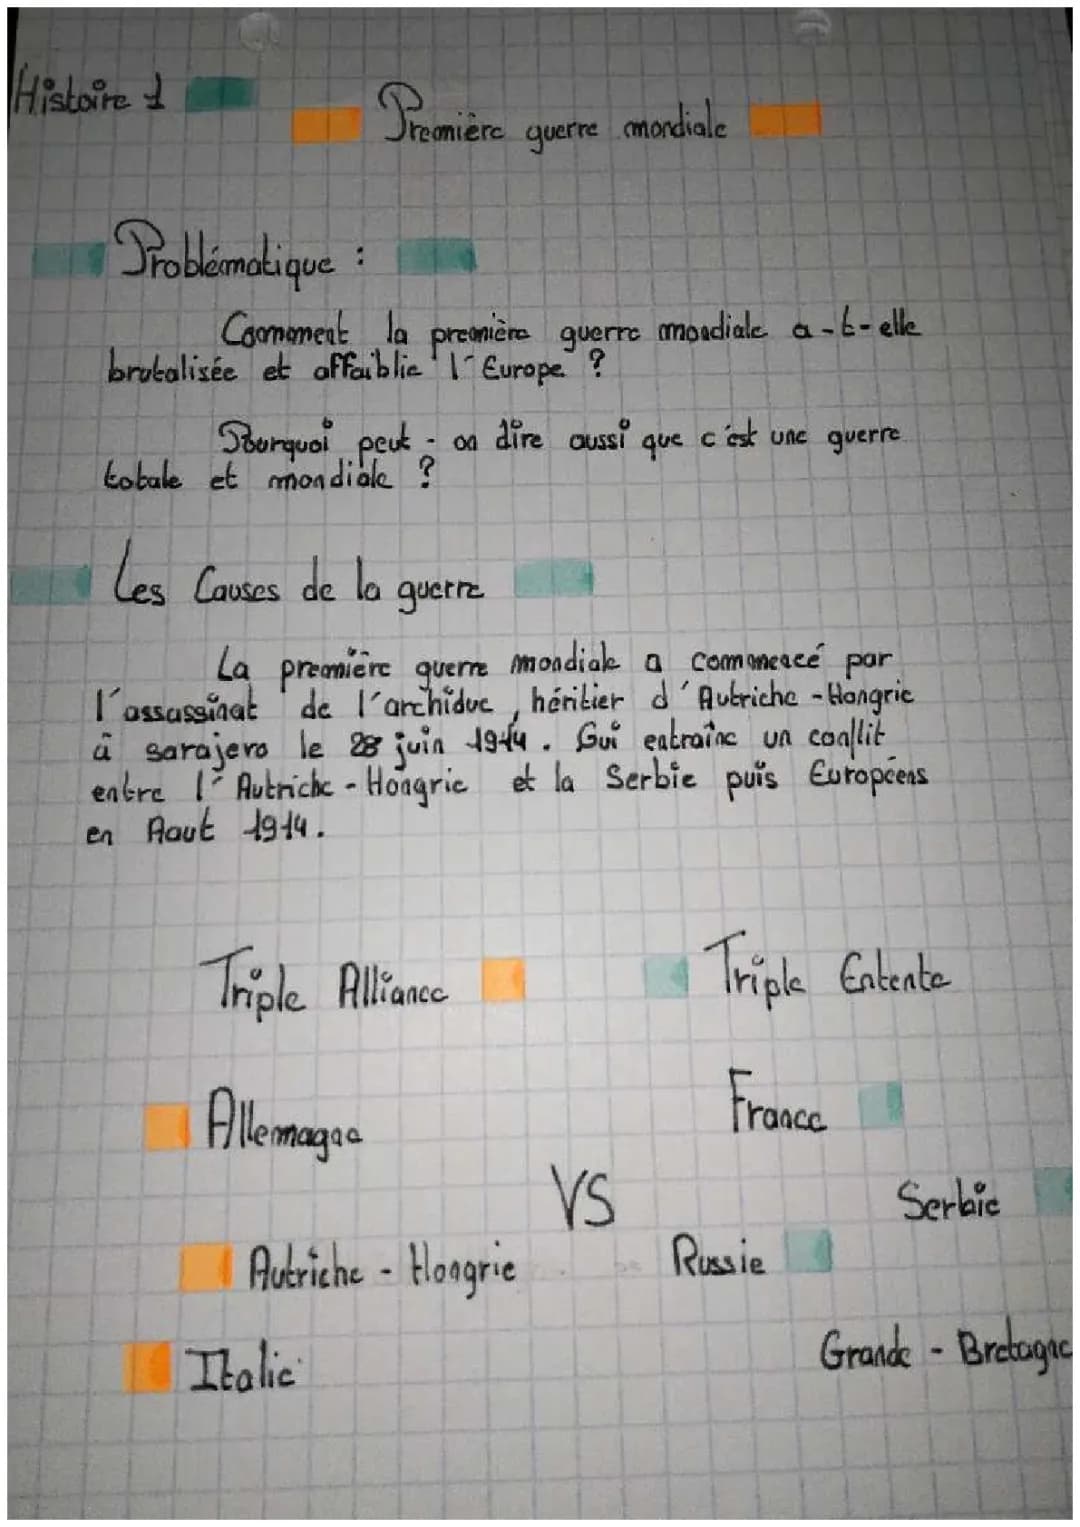 Histoire 1
Première guerre mondiale
Problématique :
Comment la première guerre mondiale a-t-elle
brutalisée et affaiblie l'Europe ?
Pourquoi peut-on dire aussi que c'est une guerre
totale et mondiale ?
Les Causes de la guerre
La première guerre mondiale a commencé par
l'assassinat de l'archiduc, héritier d'Autriche-Hongrie
à sarajevo le 28 juin 1914. Qui entraîne un conflit
entre l'Autriche-Hongrie et la Serbie puis Européens
en Aout 1914.
Triple Alliance Triple Entente
Allemagne France
VS Serbie
Autriche-Hongrie Russie
Italie Grande-Bretagne